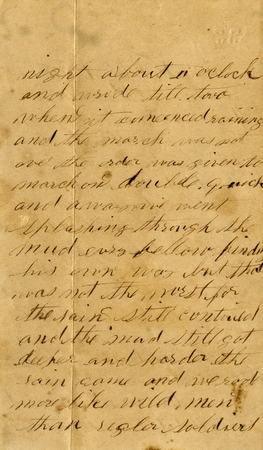 night about 11 oclock
and rode till two
when it comenced raining
and the march was not
ove the order was given to
march on double quick
and away we went
splashing through the
mud evry fellow finding
his own way but that
was not the worst for
the rain still contued
and the mud still got
deeper and harder the
rain came and we rod
more like wild men
than regler soldiers